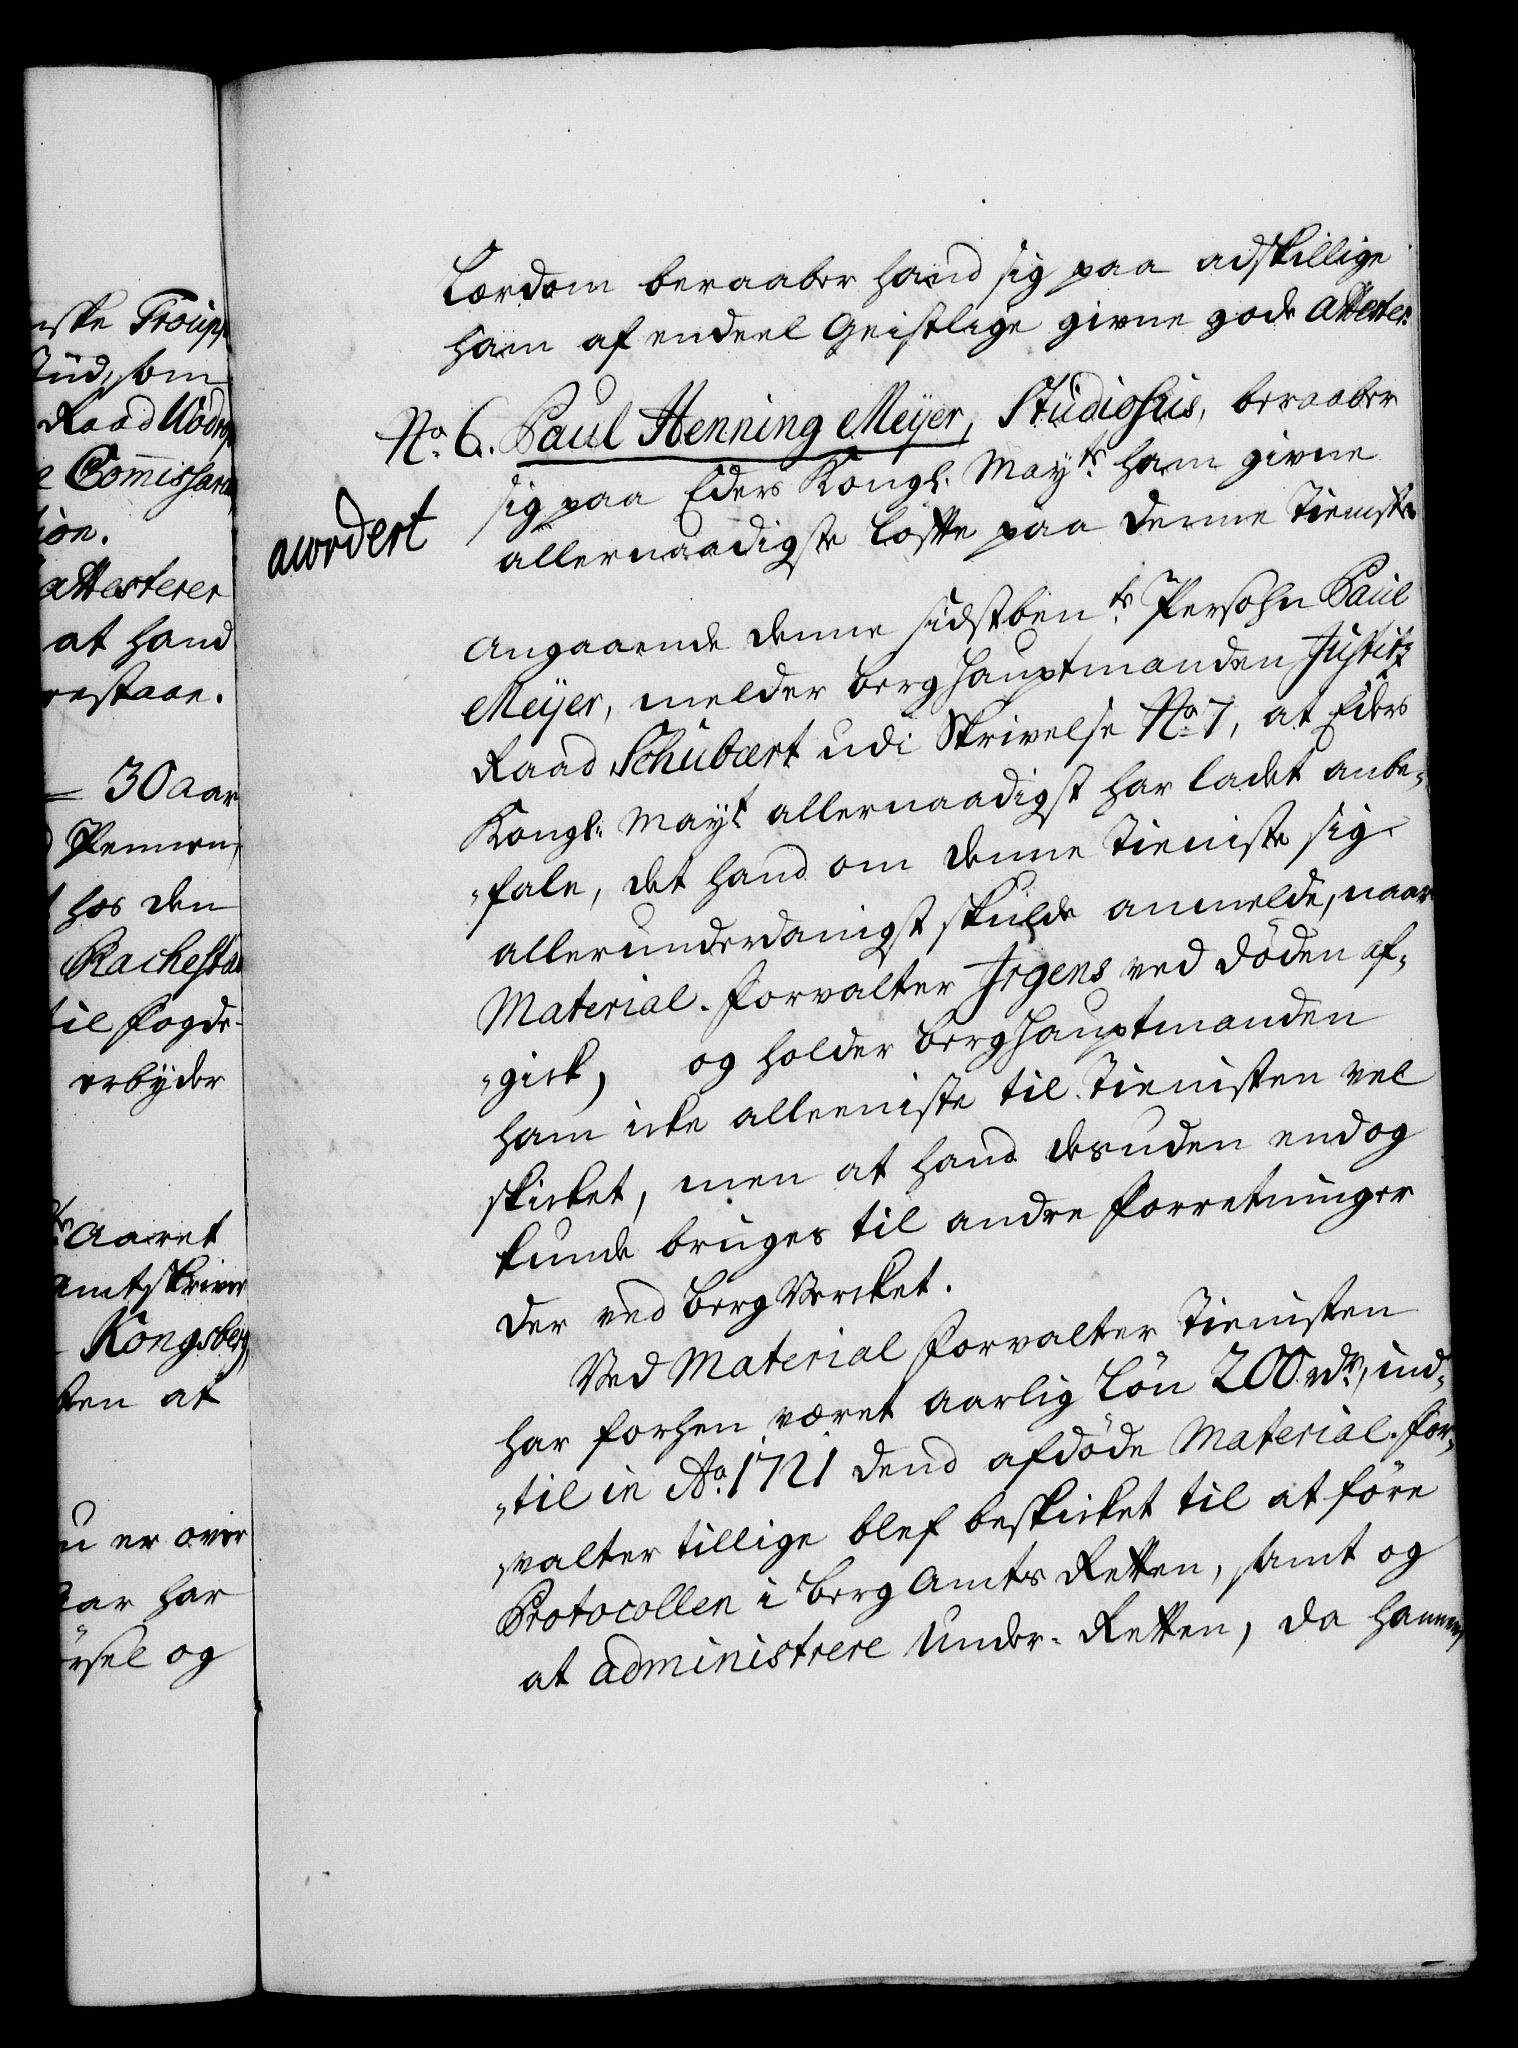 nske Troupp
Tiid, som
Raad Woдrof
Commissari
ion.
attesterer
at hand
restaae.
= 30 aar
Pennen,
hos den
Rachesta
til Fogde-
erbyder
Aaret
amtskriver
Kongsberg
ten at
u er over
aar har
örsel og
Lærdom beraaber hand sig paa adskillige
ham af endeel Geistlige givne gode Attester.
No. 6. Paul Henning Meÿer, Studiosus, beraaber
sig paa Eders Kongl. Mayts ham givne
allernaadigste løfte paa denne Tieniste
acordert
Angaaende denne sidstbente Persohn Paul
Meÿer, melder Berghauptmanden Justitz
Raad Schubart udi Skrivelse No 7, at Eders
Kongl. Mayt allernaadigst har ladet anbe-
fale, det hand om denne Tieniste sig
allerunderdanigst skulde anmelde, naar
Material-Forvalter Irgens ved döden af-
gick, og holder Berghauptmanden
ham icke alleeniste til Tienisten vel
skicket, men at hand desuden endog
kunde bruges til andre Forretninger
der ved Berg Vercket.
Ved Material Forvalter Tienisten
har forhen været aarlig Lön 200 rdr, ind-
til in Ao. 1721 dend afdöde Material-For-
valter tillige blef beskicket til at före
Protocollen i Berg Amts Retten, samt og
at administrere Under-Retten, da hannem